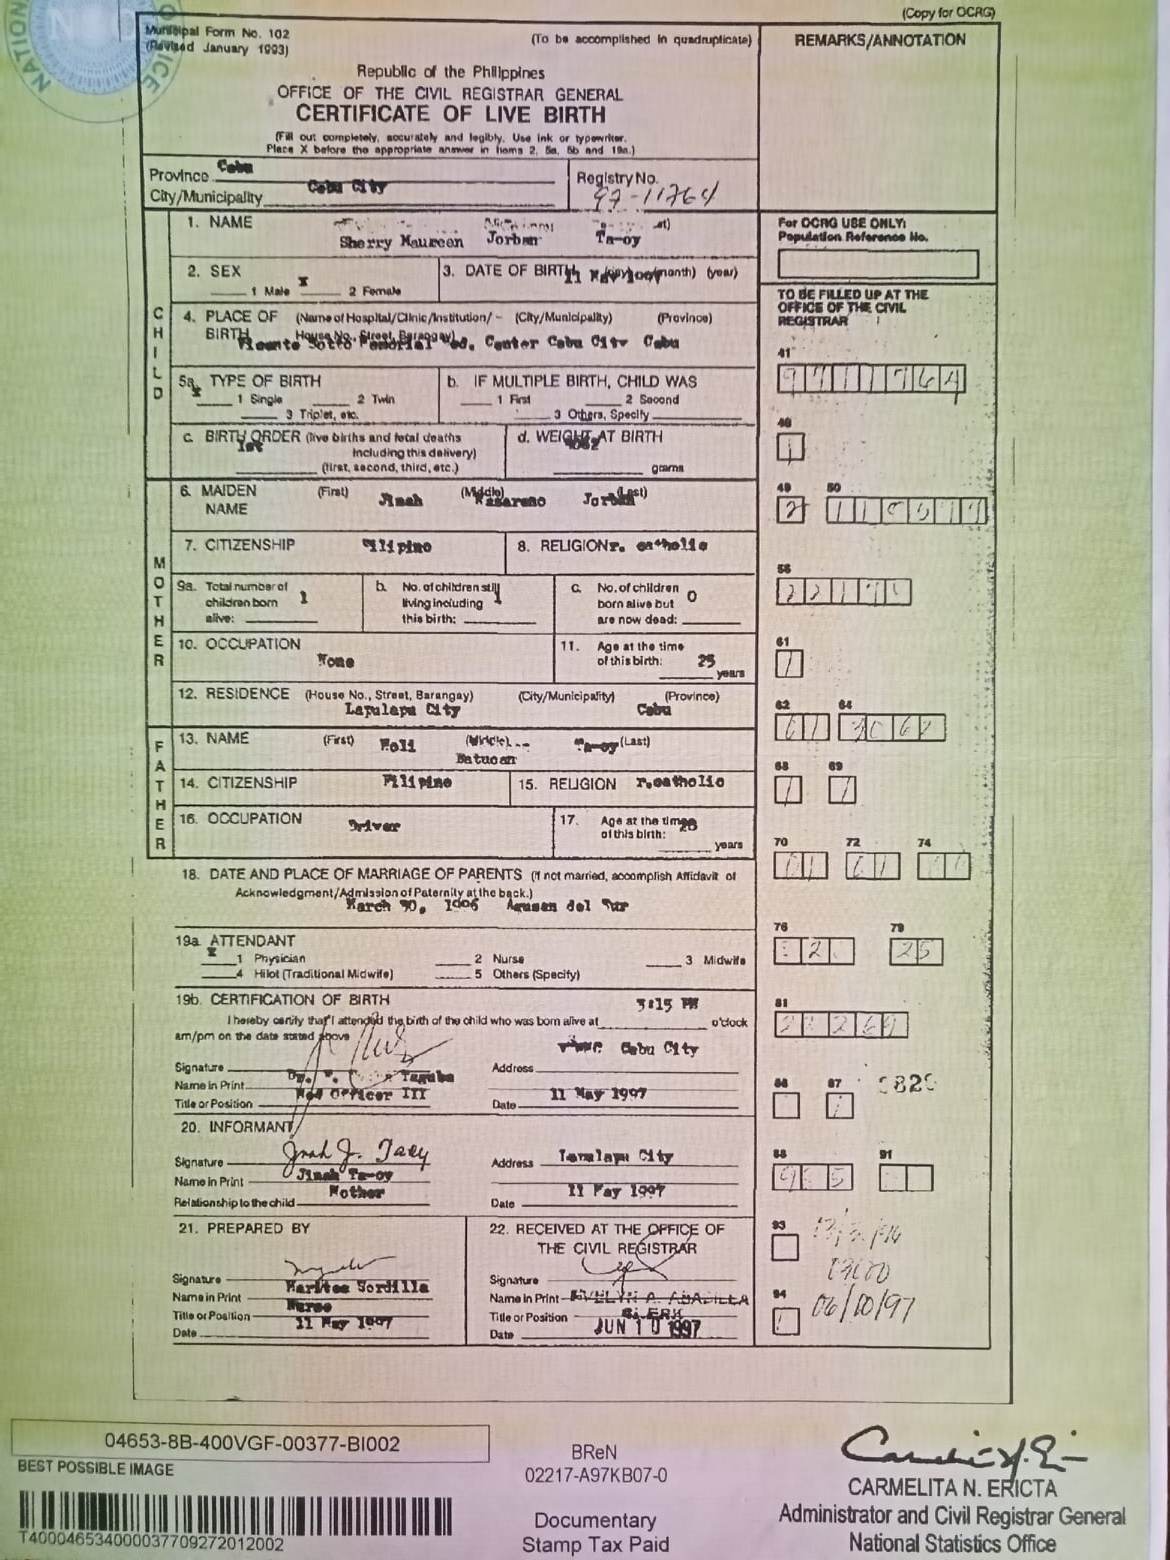 (Copy for OCRG)
Municipal Form No. 102
(Revised January 1993)
(To be accomplished in quadruplicate)
REMARKS/ANNOTATION
Republic of the Philippines
OFFICE OF THE CIVIL REGISTRAR GENERAL
CERTIFICATE OF LIVE BIRTH
(Fill out completely, accurately and legibly. Use ink or typewriter.
Place X before the appropriate answer in items 2, 5a, 5b and 19a.)
Province Cebu
City/Municipality Cebu City
Registry No.
97-11764
CHILD
1. NAME
Sherry Maureen Jorban Ta-oy
For OCRG USE ONLY:
Population Reference No.
2. SEX
X
1 Male 2 Female
3. DATE OF BIRTH (day) (month) (year)
11 May 1997
TO BE FILLED UP AT THE
OFFICE OF THE CIVIL
REGISTRAR
4. PLACE OF BIRTH (Name of Hospital/Clinic/Institution/ (City/Municipality) (Province)
House No., Street, Barangay)
Vicente Sotto Memorial Med. Center Cebu City Cebu
41
9711764
5a. TYPE OF BIRTH
X
1 Single 2 Twin
3 Triplet, etc.
b. IF MULTIPLE BIRTH, CHILD WAS
1 First 2 Second
3 Others, Specify
c. BIRTH ORDER (live births and fetal deaths
including this delivery)
1st
(first, second, third, etc.)
d. WEIGHT AT BIRTH
grams
48
1
MOTHER
6. MAIDEN NAME (First) (Middle) (Last)
Jinah Nazareno Jorban
49 50
2
7. CITIZENSHIP Filipino
8. RELIGION r. catholic
56
9a. Total number of
children born
alive: 1
b. No. of children still
living including
this birth: 1
c. No. of children
born alive but
are now dead: 0
10. OCCUPATION
None
11. Age at the time
of this birth: 25
years
61
1
12. RESIDENCE (House No., Street, Barangay) (City/Municipality) (Province)
Lapulapu City Cebu
62 64
FATHER
13. NAME (First) (Middle) (Last)
Ta-oy
Batucan
14. CITIZENSHIP Filipino
15. RELIGION r.catholic
68 69
1 1
16. OCCUPATION
Driver
17. Age at the time
of this birth:
years
70 72 74
01 61
18. DATE AND PLACE OF MARRIAGE OF PARENTS (If not married, accomplish Affidavit of
Acknowledgment/Admission of Paternity at the back.)
March 30, 1996 Agusan del Sur
76 79
25
19a. ATTENDANT
X
1 Physician 2 Nurse 3 Midwife
4 Hilot (Traditional Midwife) 5 Others (Specify)
19b. CERTIFICATION OF BIRTH
3:15 PM
I hereby certify that I attended the birth of the child who was born alive at o'clock
am/pm on the date stated above
81
Cebu City
Signature
Address
Name in Print Dr.
Title or Position Med Officer III
Date 11 May 1997
86 87
20. INFORMANT
Signature
Address Lapulapu City
88 91
Name in Print Jinah Ta-oy
Relationship to the child Mother
Date 11 May 1997
21. PREPARED BY
22. RECEIVED AT THE OFFICE OF
THE CIVIL REGISTRAR
93
Signature
Signature
Name in Print Maritee Sordilla
Name in Print EVELYN A. ABADILLA
94
06/10/97
Title or Position Nurse
Title or Position CLERK
Date 11 May 1997
Date JUN 10 1997
04653-8B-400VGF-00377-BI002
BEST POSSIBLE IMAGE
T400046534000037709272012002
BReN
02217-A97KB07-0
Documentary
Stamp Tax Paid
CARMELITA N. ERICTA
Administrator and Civil Registrar General
National Statistics Office